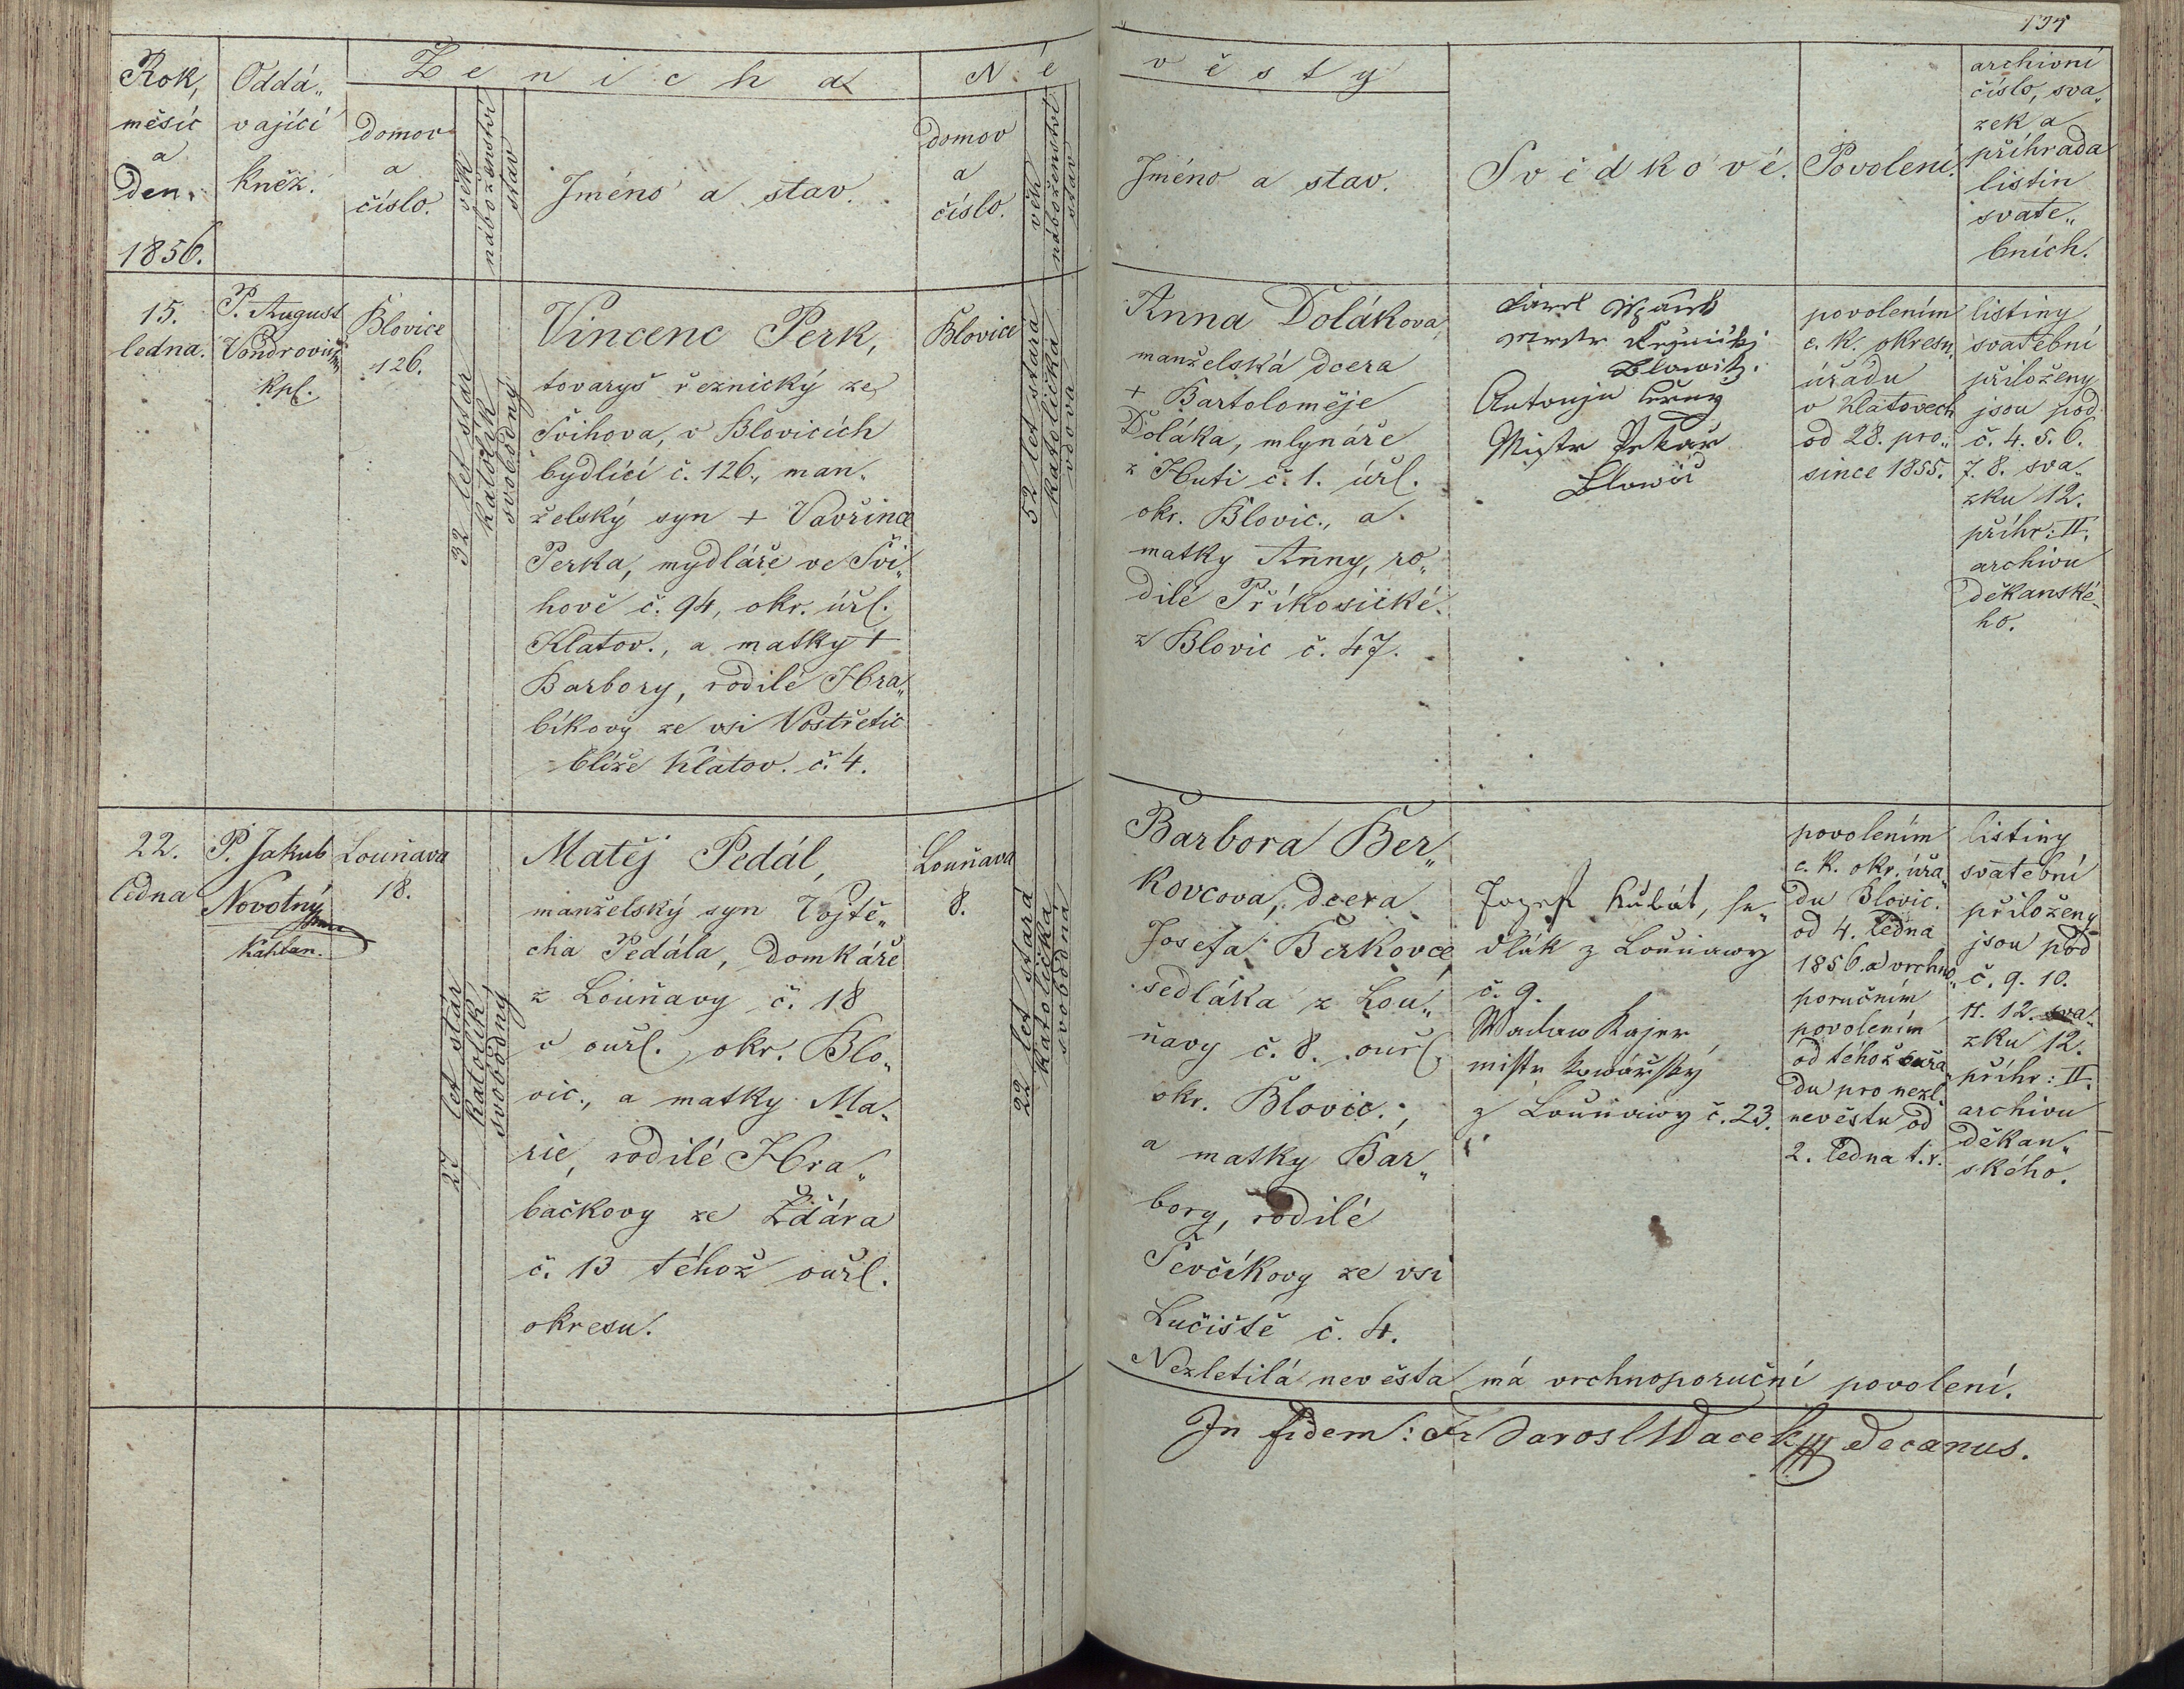 194
Ženicha
Nevěsty
Rok,
měsíc
a
Den.
1856.
Oddá„
vající
kněz.
domov
a
číslo.
věk
náboženství
stav
Jméno a stav.
domov
a
číslo.
věk
náboženství
stav
Jméno a stav.
Svědkové.
Povolení.
archivní
číslo, sva„
zek a
příhrada
listin
svate„
bních.
15.
ledna.
P. August
Vondrovic
Kpl.
Blovice
126.
32 let stár
katolík
svobodný
Vincenc Perk,
tovaryš řeznický ze
Švihova, v Blovicích
bydlící č. 126., man„
želský syn + Vavřince
Perka, mydláře ve Švi„
hově č. 94, okr. úřl.
Klatov., a matky +
Barbory, rodilé Hra„
bíkovy ze vsi Vostřetic
blíže Klatov. č. 4.
Blovice
52 let stará
katolička
vdova
Anna Dolákova,
manželská dcera
+ Bartoloměje
Doláka, mlynáře
z Huti č. 1. úřl.
okr. Blovic., a
matky Anny, ro„
dilé Příkosické
z Blovic č. 47.
Blowitz.
Antonjn Černy
Mistr Pekař
Blowic
povolením
c. k. okresn.
úřadu
v Klatovech
od 28. pro„
since 1855.
listiny
svatební
přiloženy
jsou pod
č. 4. 5. 6.
7. 8. sva„
zku 12.
příhr: II.
archivu
děkanské„
ho.
22.
ledna
P. Jakub
Novotný
Kaplan.
Louňava
18.
27 let stár
katolík,
svobodný
Matěj Pedál,
manželský syn Vojtě„
cha Pedála, domkáře
z Louňavy č. 18
v ouřl. okr. Blo„
vic., a matky Ma„
rie, rodilé Hra„
bačkovy ze Ždára
č. 13 téhož ouřl.
okresu.
Louňava
8.
22 let stará
katolička
svobodná
Barbora Ber„
kovcova, dcera
Josefa Berkovce,
sedláka z Lou„
ňavy č. 8. ouřl.
okr. Blovic.,
a matky Bar„
bory, rodilé
Ševčíkovy ze vsi
Lučiště č. 4.
Jozef Kůlát, se„
dlák z Louňawy
č. 9.
Waclaw Kajer,
mistr kowářský
z Louňawy č. 23.
povolením
c. k. okr. úřa„
du Blovic.
od 4. ledna
1856. a vrchno„
poručním
povolením
od téhož ouřa„
du pro nezl.
nevěstu od
2. ledna t. r.
listiny
svatební
přiloženy
jsou pod
č. 9. 10.
11. 12. sva„
zku 12.
příhr: II.
archivu
děkan„
ského.
Nezletilá nevěsta má vrchnoporuční povolení.
In fidem: Fr Jarosl Wacek decanus.